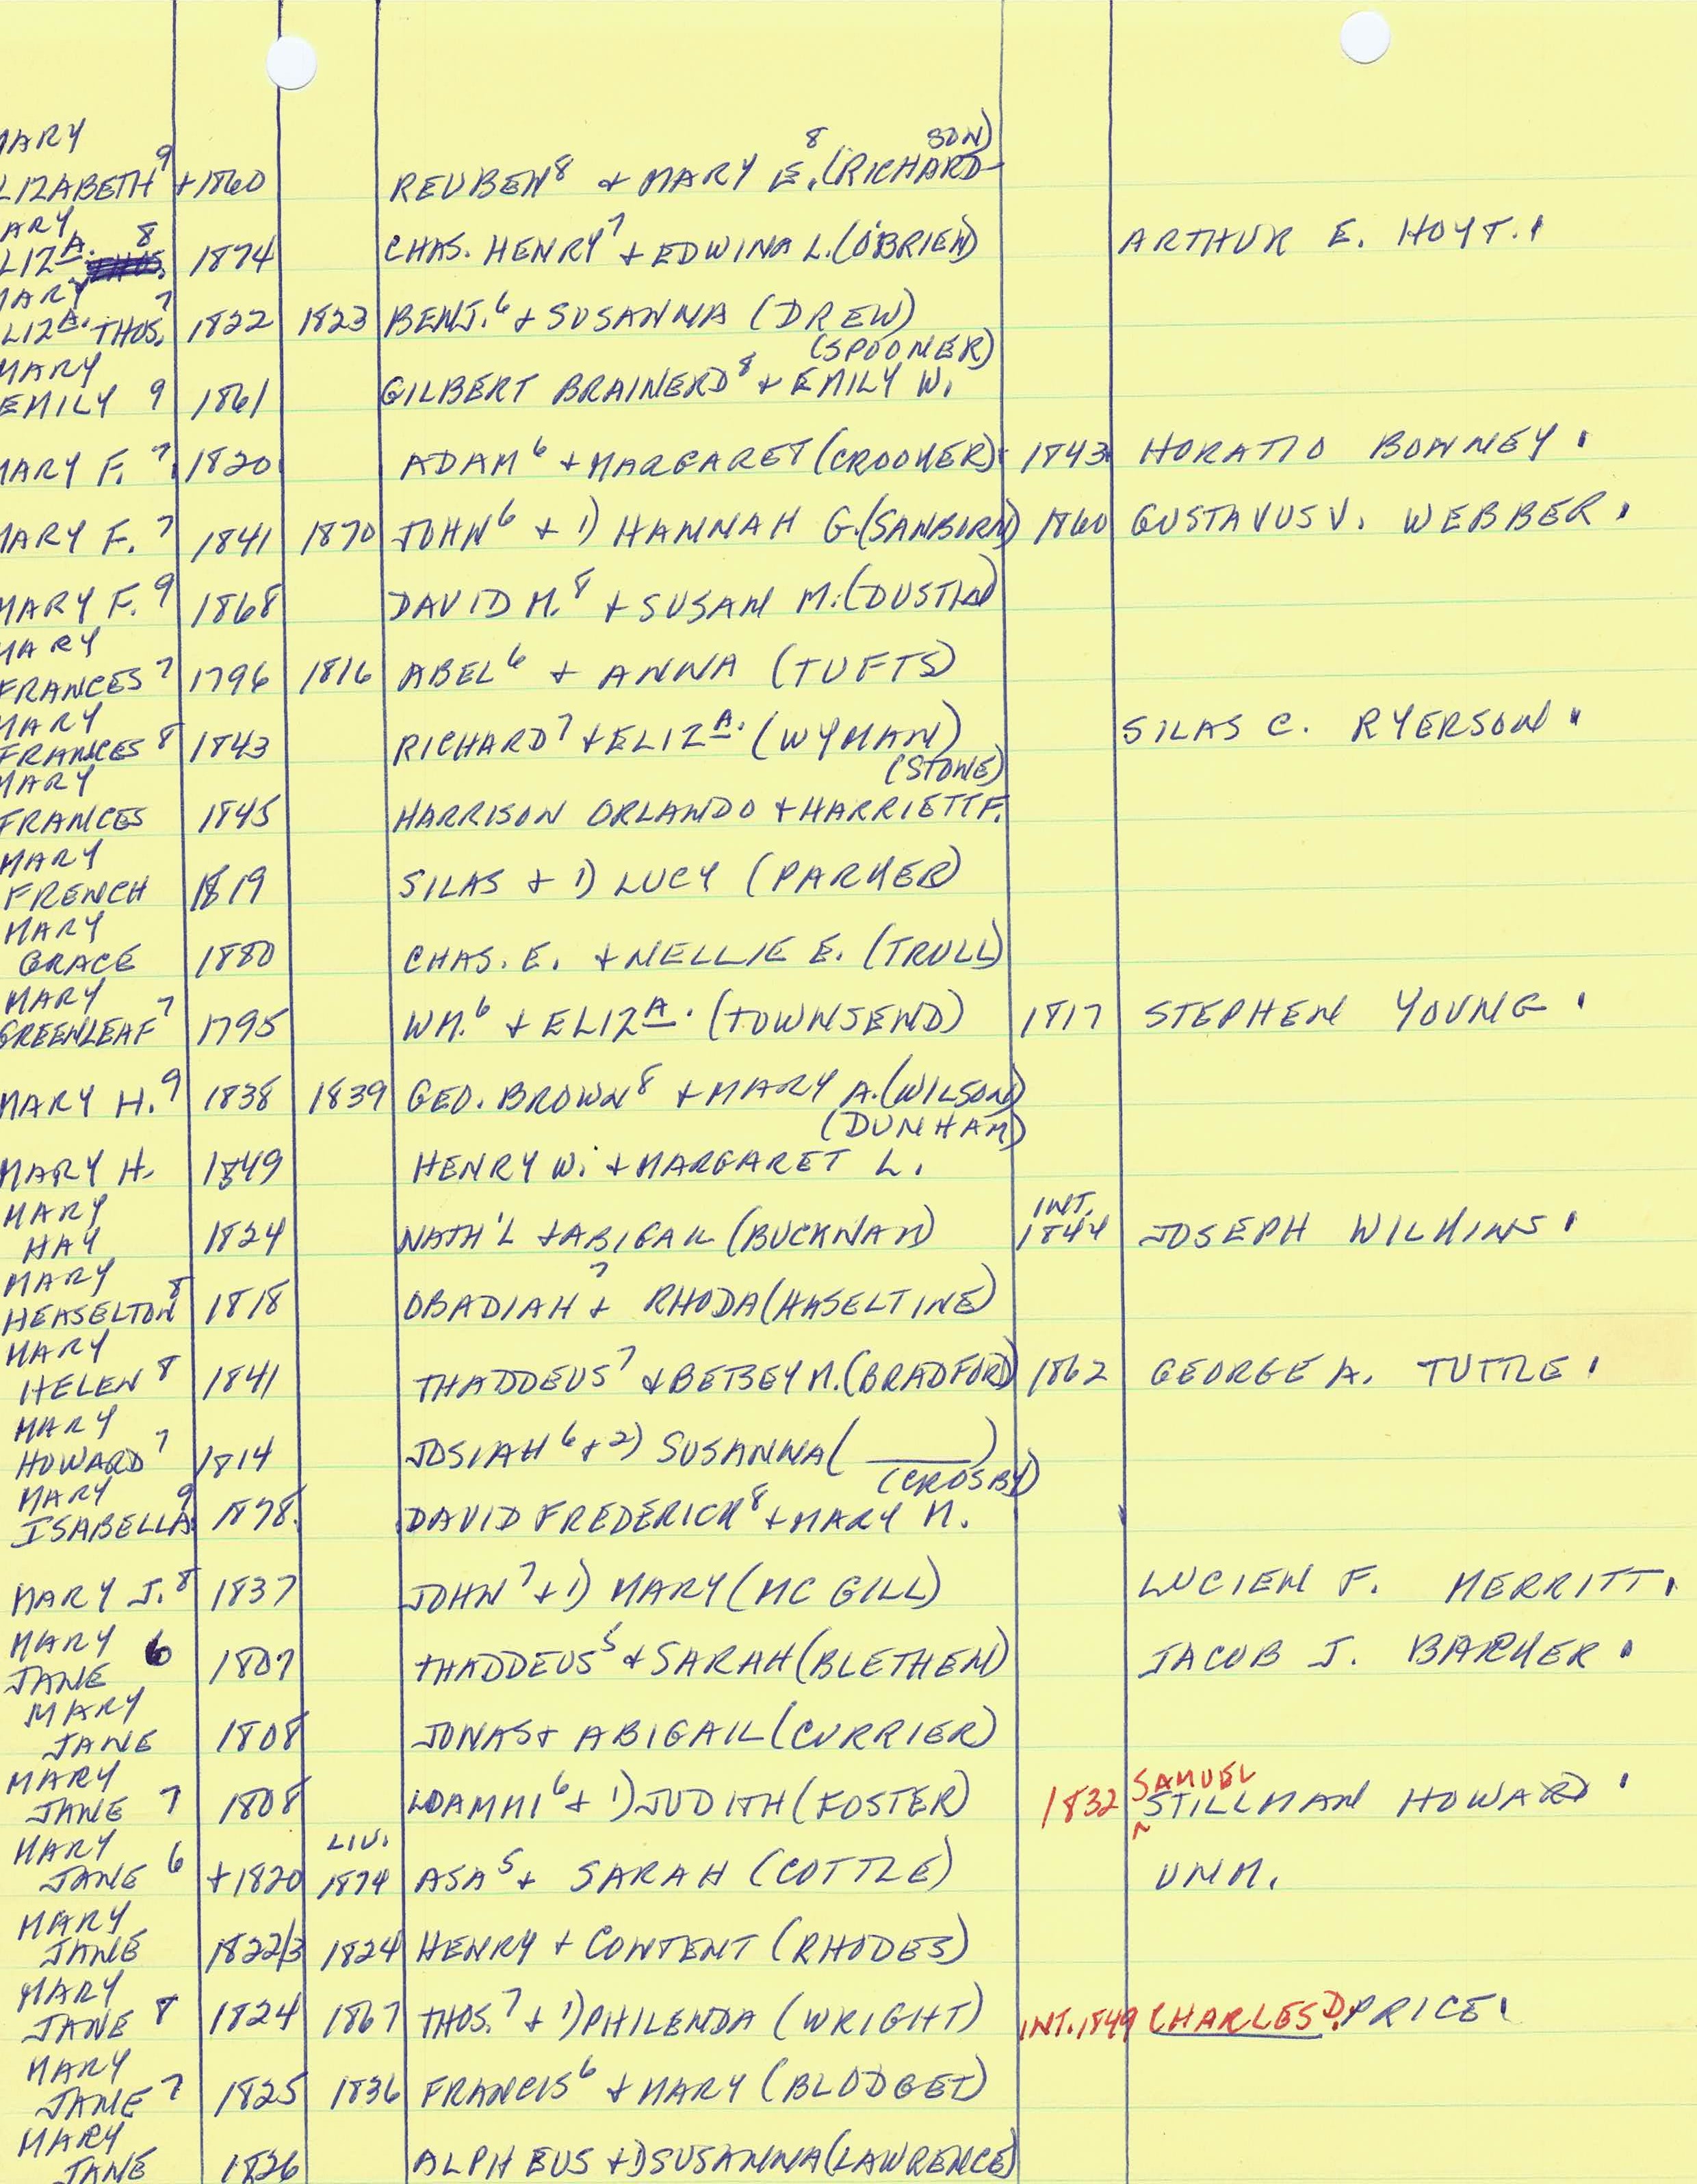 MARY
LIZABETH 9 +1860 REUBEN 8 + MARY E. 8 (RICHARDSON)
ARY
LIZA. 8 1874 CHAS. HENRY 7 + EDWINA L. (O'BRIEN) ARTHUR E. HOYT.
MARY
LIZA. THOS. 7 1822 1823 BENJ. 6 + SUSANNA (DREW)
MARY (SPOONER)
EMILY 9 1861 GILBERT BRAINERD 8 + EMILY W.
MARY F. 7 1820 ADAM 6 + MARGARET (CROOKER) 1843 HORATIO BONNEY.
MARY F. 7 1841 1870 JOHN 6 + 1) HANNAH G. (SANBORN) 1860 GUSTAVUS V. WEBBER.
MARY F. 9 1868 DAVID M. 8 + SUSAN M. (DUSTIN)
MARY
FRANCES 7 1796 1816 ABEL 6 + ANNA (TUFTS)
MARY
FRANCES 8 1843 RICHARD 7 + ELIZA. (WYMAN) SILAS C. RYERSON.
MARY (STONE)
FRANCES 1845 HARRISON ORLANDO + HARRIETT F.
MARY
FRENCH 1819 SILAS + 1) LUCY (PARKER)
MARY
GRACE 1880 CHAS. E. + NELLIE E. (TRULL)
MARY
GREENLEAF 7 1795 WM. 6 + ELIZA. (TOWNSEND) 1817 STEPHEN YOUNG.
MARY H. 9 1838 1839 GEO. BROWN 8 + MARY A. (WILSON)
(DUNHAM)
MARY H. 1849 HENRY W. + MARGARET L.
MARY INT.
HAY 1824 NATH'L + ABIGAIL (BUCKNAM) 1844 JOSEPH WILKINS.
MARY
HEASELTON 8 1818 OBADIAH 7 + RHODA (HASELTINE)
MARY
HELEN 8 1841 THADDEUS 7 + BETSEY M. (BRADFORD) 1862 GEORGE A. TUTTLE.
MARY
HOWARD 7 1814 JOSIAH 6 + 2) SUSANNA (______)
MARY (CROSBY)
ISABELLA 9 1878. DAVID FREDERICK 8 + MARY M.
MARY J. 8 1837 JOHN 7 + 1) MARY (MC GILL) LUCIEN F. MERRITT.
MARY
JANE 6 1807 THADDEUS 5 + SARAH (BLETHEN) JACOB J. BARKER.
MARY
JANE 1808 JONAS + ABIGAIL (CURRIER)
MARY SAMUEL
JANE 7 1808 LOAMMI 6 + 1) JUDITH (FOSTER) 1832 ^ STILLMAN HOWARD.
MARY LIV.
JANE 6 +1820 1874 ASA 5 + SARAH (COTTLE) UNM.
MARY
JANE 1822/3 1824 HENRY + CONTENT (RHODES)
MARY
JANE 8 1824 1867 THOS. 7 + 1) PHILENDA (WRIGHT) INT. 1849 CHARLES D. PRICE.
MARY
JANE 7 1825 1836 FRANCIS 6 + MARY (BLODGET)
MARY
JANE 1826 ALPHEUS + 1) SUSANNA (LAWRENCE)